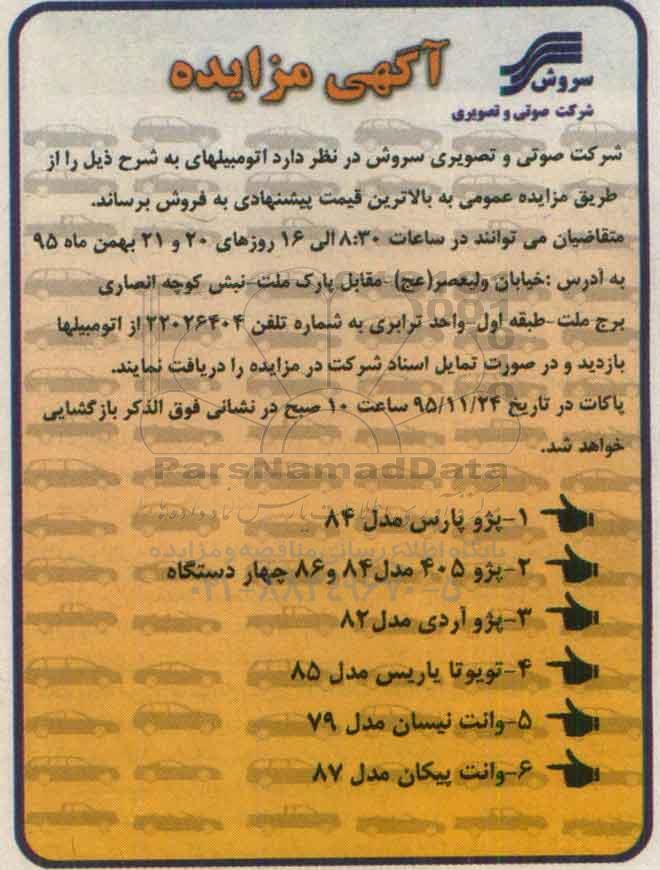 سروش
شرکت صوتی و تصویری
آگهی مزایده
شرکت صوتی و تصویری سروش در نظر دارد اتومبیلهای به شرح ذیل را از
طریق مزایده عمومی به بالاترین قیمت پیشنهادی به فروش برساند.
متقاضیان می توانند در ساعات ۸:۳۰ الی ۱۶ روزهای ۲۰ و ۲۱ بهمن ماه ۹۵
به آدرس :خیابان ولیعصر(عج)-مقابل پارک ملت-نبش کوچه انصاری
برج ملت-طبقه اول-واحد ترابری به شماره تلفن ۲۲۰۲۶۴۰۴ از اتومبیلها
بازدید و در صورت تمایل اسناد شرکت در مزایده را دریافت نمایند.
پاکات در تاریخ ۹۵/۱۱/۲۴ ساعت ۱۰ صبح در نشانی فوق الذکر بازگشایی
خواهد شد.
ParsNamadData
۱-پژو پارس مدل ۸۴
پایگاه اطلاع رسانی مناقصه و مزایده
۲-پژو ۴۰۵ مدل۸۴ و۸۶ چهار دستگاه
۰۲۱-۸۸۳۴۹۶۷۰-۵
۳-پژو آردی مدل۸۲
۴-تویوتا یاریس مدل ۸۵
۵-وانت نیسان مدل ۷۹
۶-وانت پیکان مدل ۸۷